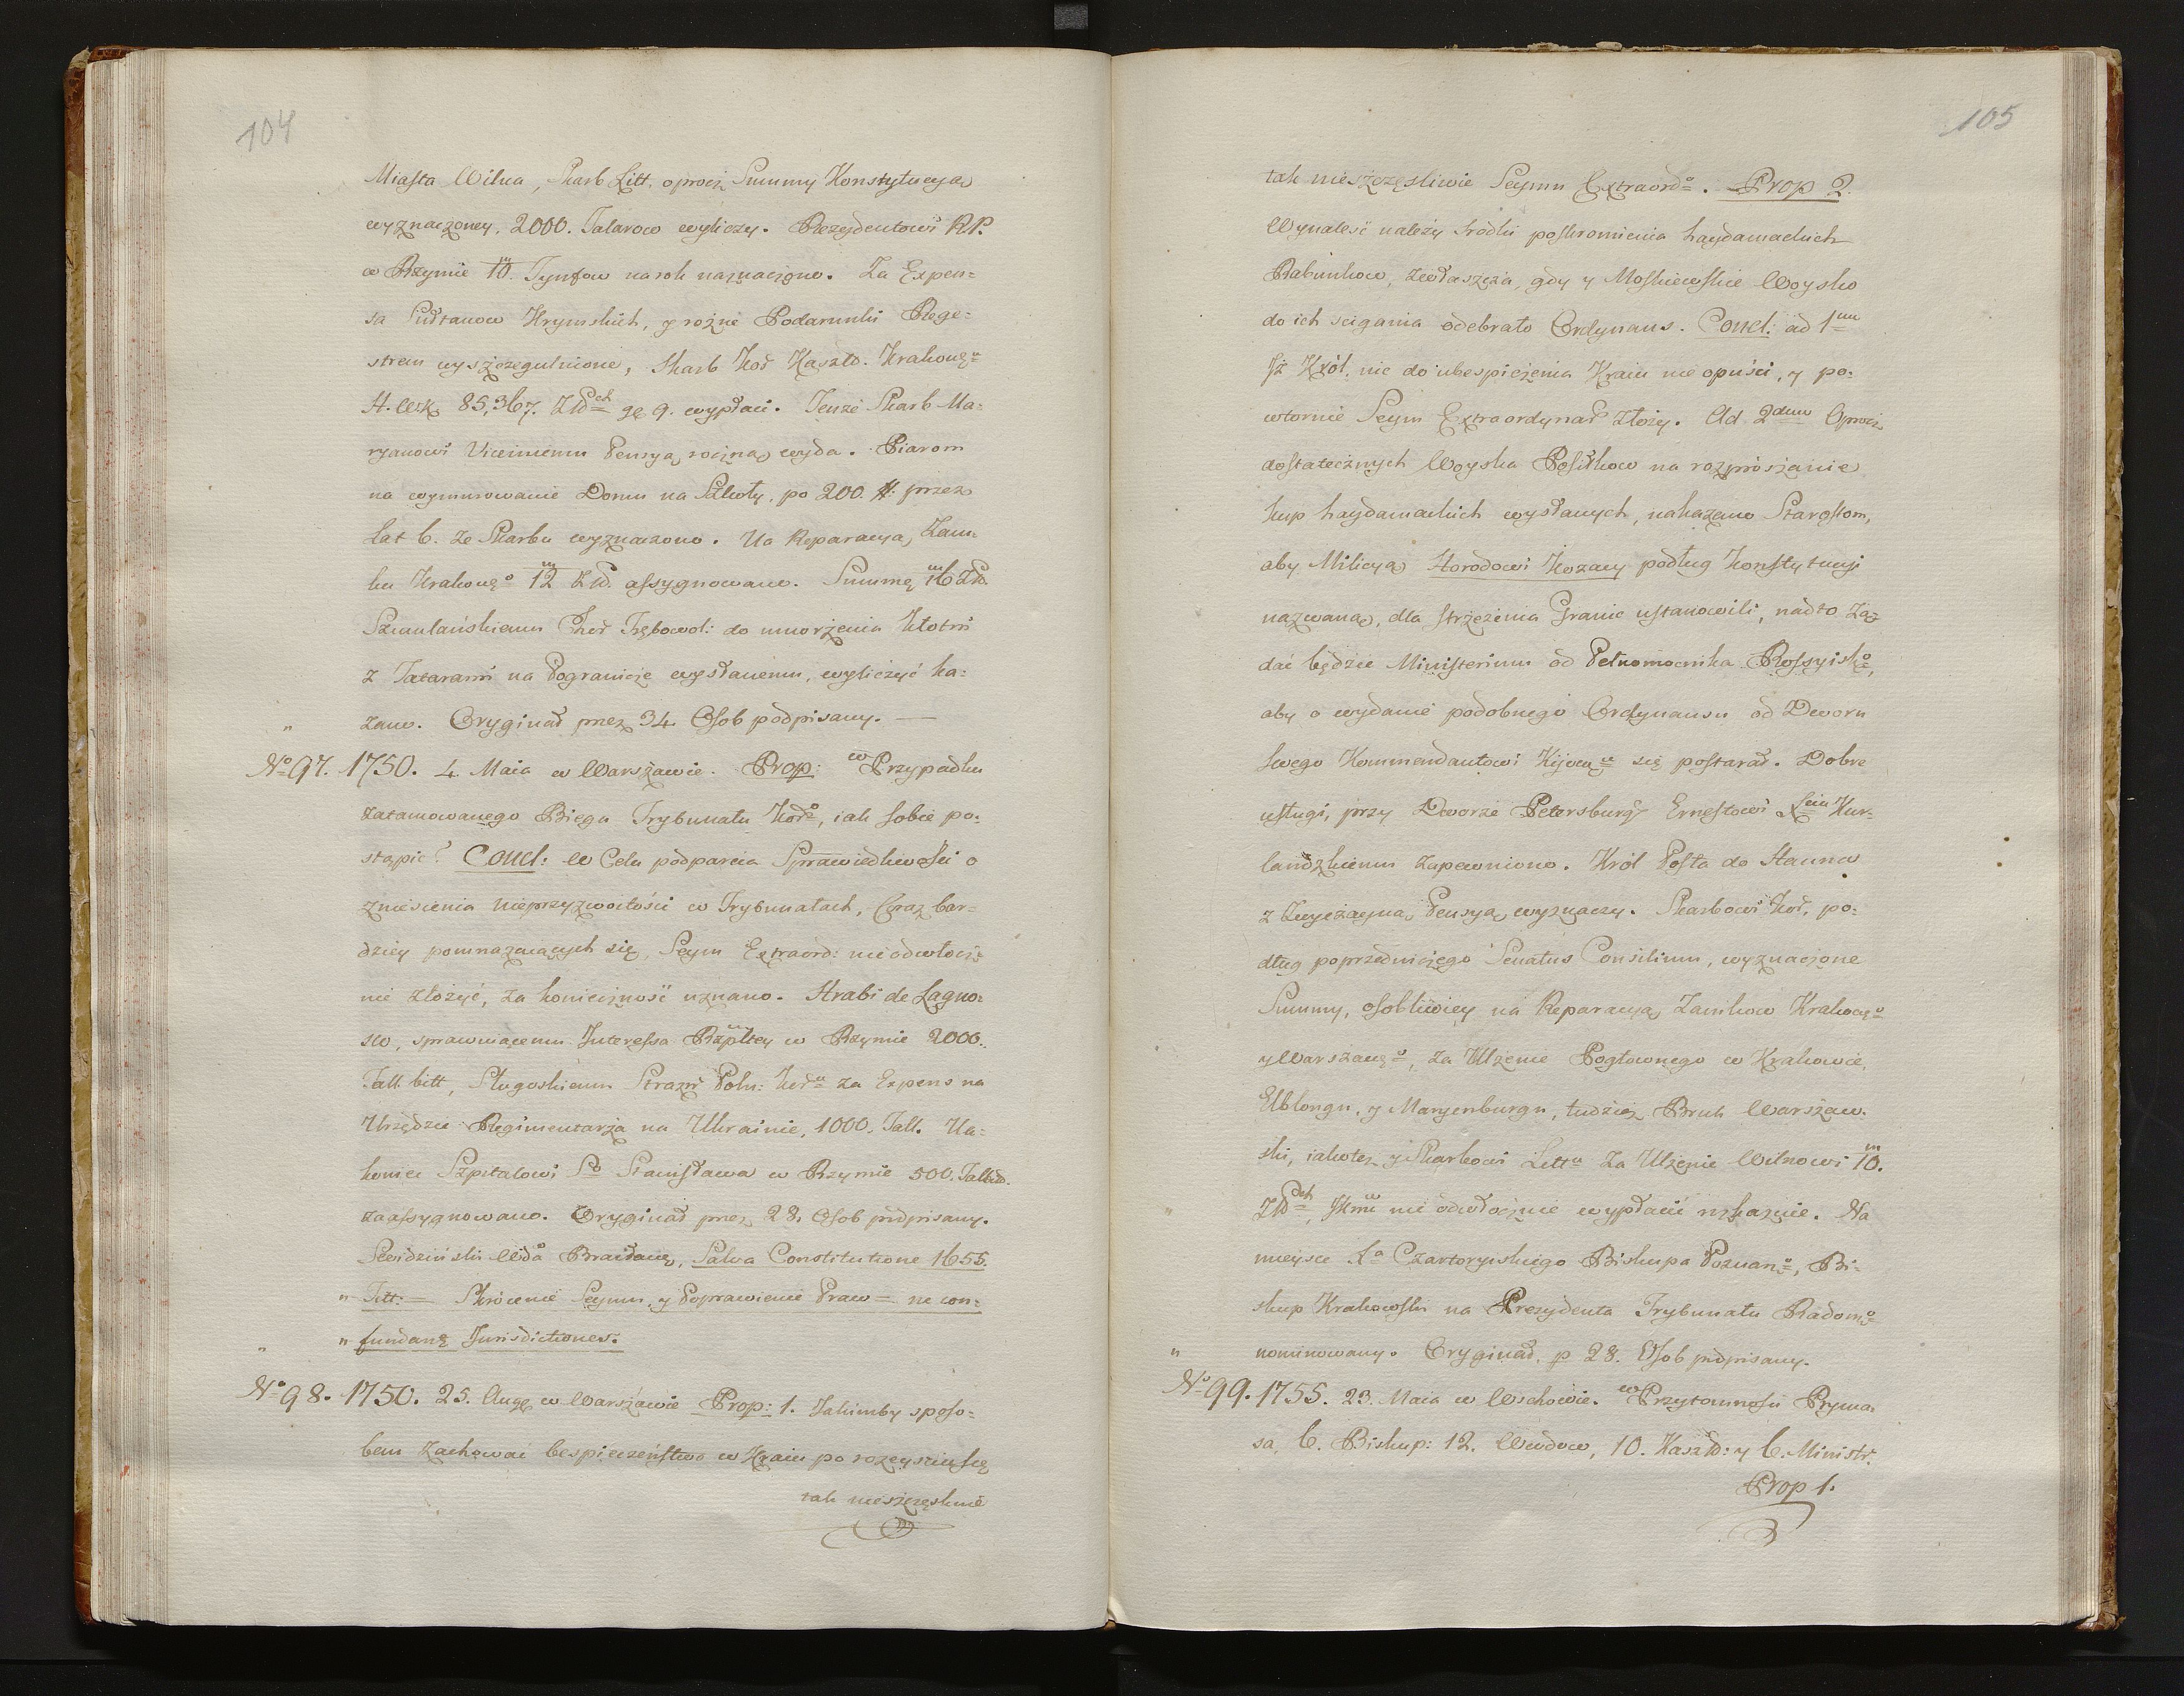 104
Miasta Wilna, Skarb Litt. oprocz Summy Konstytucyą
wyznaczoney, 2000. Talarow wyliczy. Rezydentowi RP.
w Rzymie 10. Tynfow na rok naznaczono. Za Expen=
sa Sułtanow Krymskich, y rożne Podarunki Rege=
strem wyszczegulnione, Skarb Kor Kasztel. Krakowº
85,367. gr 9. wypłaci. Tenże Skarb Ma=
ryanowi Pensyą roczną wyda. Piarom
na wymurowanie Domu na Szkoły, po 200. # przez
lat 6. ze Skarbu wyznaczono. Na Reparacyą Zam=
ku Krakowº 12 Złł. assygnowano. Summę 16 Złł.
Szumlańskiemu Chor Trębowol: do umorzenia Kłotni
z Tatarami na Pogranicze wysłanemu, wyliczyć ka=
zano. Oryginał przez 34 Osob podpisany.
Nº 97. 1750. 4 Maia w Warszawie. Prop: w Przypadku
zatamowanego Biegu Trybunału Korº, iak sobie po=
stąpić? Concl: W Celu podparcia Sprawiedliwości o
zniesienia nieprzyzwoitości w Trybunałach, Coraz bar=
dziey pomnażaiących się, Seym Extraord: nieodwłocz=
nie złożyć, za konieczność uznano. Hrabi de Lagna=
sco, sprawuiącemu Interessa Rzpltey w Rzymie 2000.
Tall. bitt, Długoskiemu Strażn Poln: Korº za Expens na
Urzędzie Regimentarza na Ukrainie, 1000. Tall. Na=
koniec Szpitalowi Sº Stanisława w Rzymie 500. Tall.
zaassygnowano. Oryginał przez 28. Osob podpisany.
Swidziński Wda Bracław, Salva Constitutione 1655.
" Titt: = Skrócenie Seymu, y Poprawienie Praw = ne con=
" fundantur Jurisdictiones.
Nº 98. 1750. 25. Aug. w Warszawie Prop: 1. Jakimby sposo=
bem zachować bespieczeństwo w Kraiu po rozeyściu się
tak nieszczęśliwie
105
tak nieszczęsliwie Seymu Extraordº. Prop 2.
Wynaleść należy środki poskromienia haydamackich
Rabunkow, zwłaszcza, gdy y Moskiewskie Woysko
do ich scigania odebrało Ordynans. Concl: ad 1um
Iż Król, nic do ubespieczenia Kraiu nie opuści, y po=
wtornie Seym Extraordynar złoży. Ad 2dum Oprocz
dostatecznych Woyska Posiłkow na rozproszanie
kup haydamackich wysłanych, nakazano Starostom,
aby Milicyą Horodowi Kozacy podług Konstytucyi
nazwaną, dla strzeżenia Granic ustanowili, nadto żą=
dać będzie Ministerium od Pełnomocnika Rossyiskº,
aby o wydanie podobnego Ordynansu od Dworu
swego Kommendantowi Kijow się postarał. Dobre
usługi, przy Dworze Petersburg Ernestowi Xciu Kur=
landzkiemu zapewniono. Król Posła do Hanna
z Zwyczayną Pensyą wyznaczy. Skarbowi Kor, po=
dług poprzedniczego Senatus Consilium, wyznaczone
Summy, osobliwiey na Reparacyą Zamkow Krakowº
y Warszawº, za Ulżenie Pogłownego w Krakowie,
Elblongu, y Maryenburgu, tudzież Bruk Warszaw=
ski, iakoteż y Skarbowi Litt za Ulżenie Wilnowi 10.
Złł, nieodwłocznie wypłacić rozkażuie. Na
mieysce Xa Czartoryskiego Biskupa Poznanº, Bi=
skup Krakowski na Prezydenta Trybunału Radomº
nominowany. Oryginał, p 28. Osob podpisany.
Nº 99. 1755. 23. Maia w Wschowie. w Przytomności Pryma=
sa, 6. Biskup: 12. Wdow, 10. Kasztel: y 6. Ministr.
Prop 1.